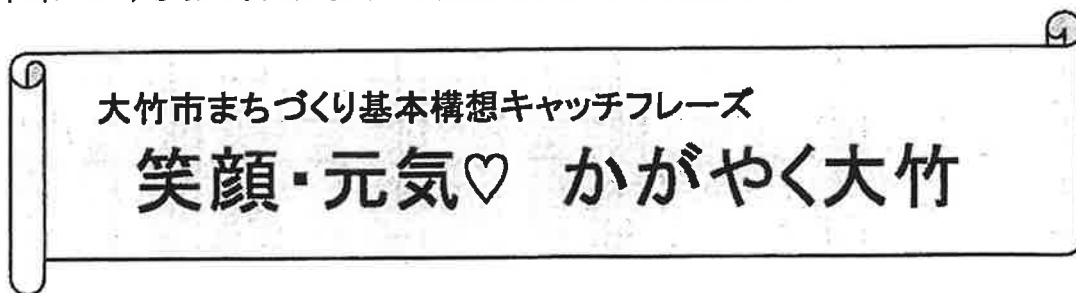 大竹市まちづくり基本構想キャッチフレーズ
笑顔・元気♡ かがやく大竹